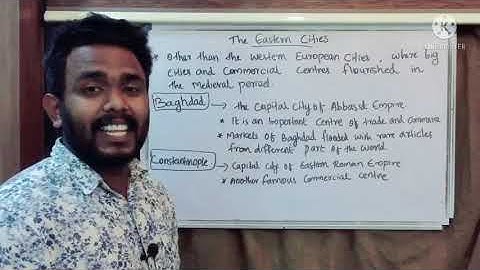 The Eastern Cities
* Other than the Western European Cities, where big
Cities and Commercial Centres flourished in
the medieval period.
Baghdad → the Capital City of Abbasid Empire
* It is an Important Centre of trade and Commerce
* Markets of Baghdad flooded with rare articles
from different part of the world
Constantinople → Capital city of Eastern Roman Empire
* Another famous Commercial centre